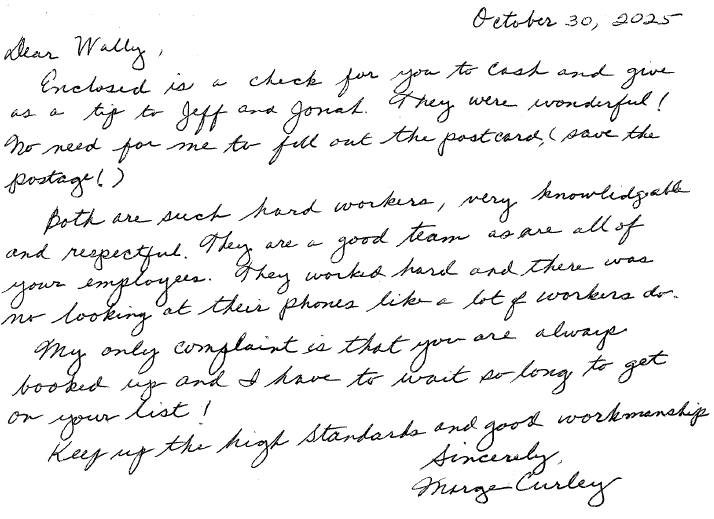 October 30, 2025
Dear Wally,
Enclosed is a check for you to cash and give
as a tip to Jeff and Jonah. They were wonderful!
No need for me to fill out the postcard, (save the
postage!)
Both are such hard workers, very knowlidgeable
and respectful. They are a good team as are all of
your employees. They worked hard and there was
no looking at their phones like a lot of workers do.
My only complaint is that you are always
booked up and I have to wait so long to get
on your list!
Keep up the high standards and good workmanship
Sincerely,
Marge Curley